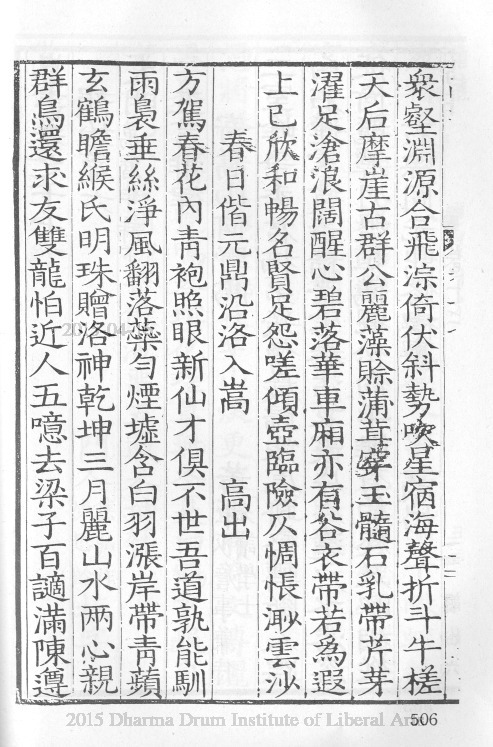 衆壑淵源合飛淙倚伏斜勢噢星宿海聲折斗牛槎
天后摩崖古群公麗藻賒蒲茸穿玉髓石乳帶芹芽
濯足滄浪闊醒心碧落華車廂亦有谷衣帶若為遐
上巳欣和暢名賢足怨嗟傾壺臨險仄惆悵泖雲沙
春日偕元鼎沿洛入嵩 高出
方駕春花內青袍照眼新仙才俱不世吾道孰能馴
雨裊垂絲淨風翻落蘂勻煙墟含白羽漲岸帶青蘋
玄鶴瞻緱氏明珠贈洛神乾坤三月麗山水兩心親
群鳥還求友雙龍怕近人五噫去梁子百讁滿陳遵
2015 Dharma Drum Institute of Liberal Arts
506